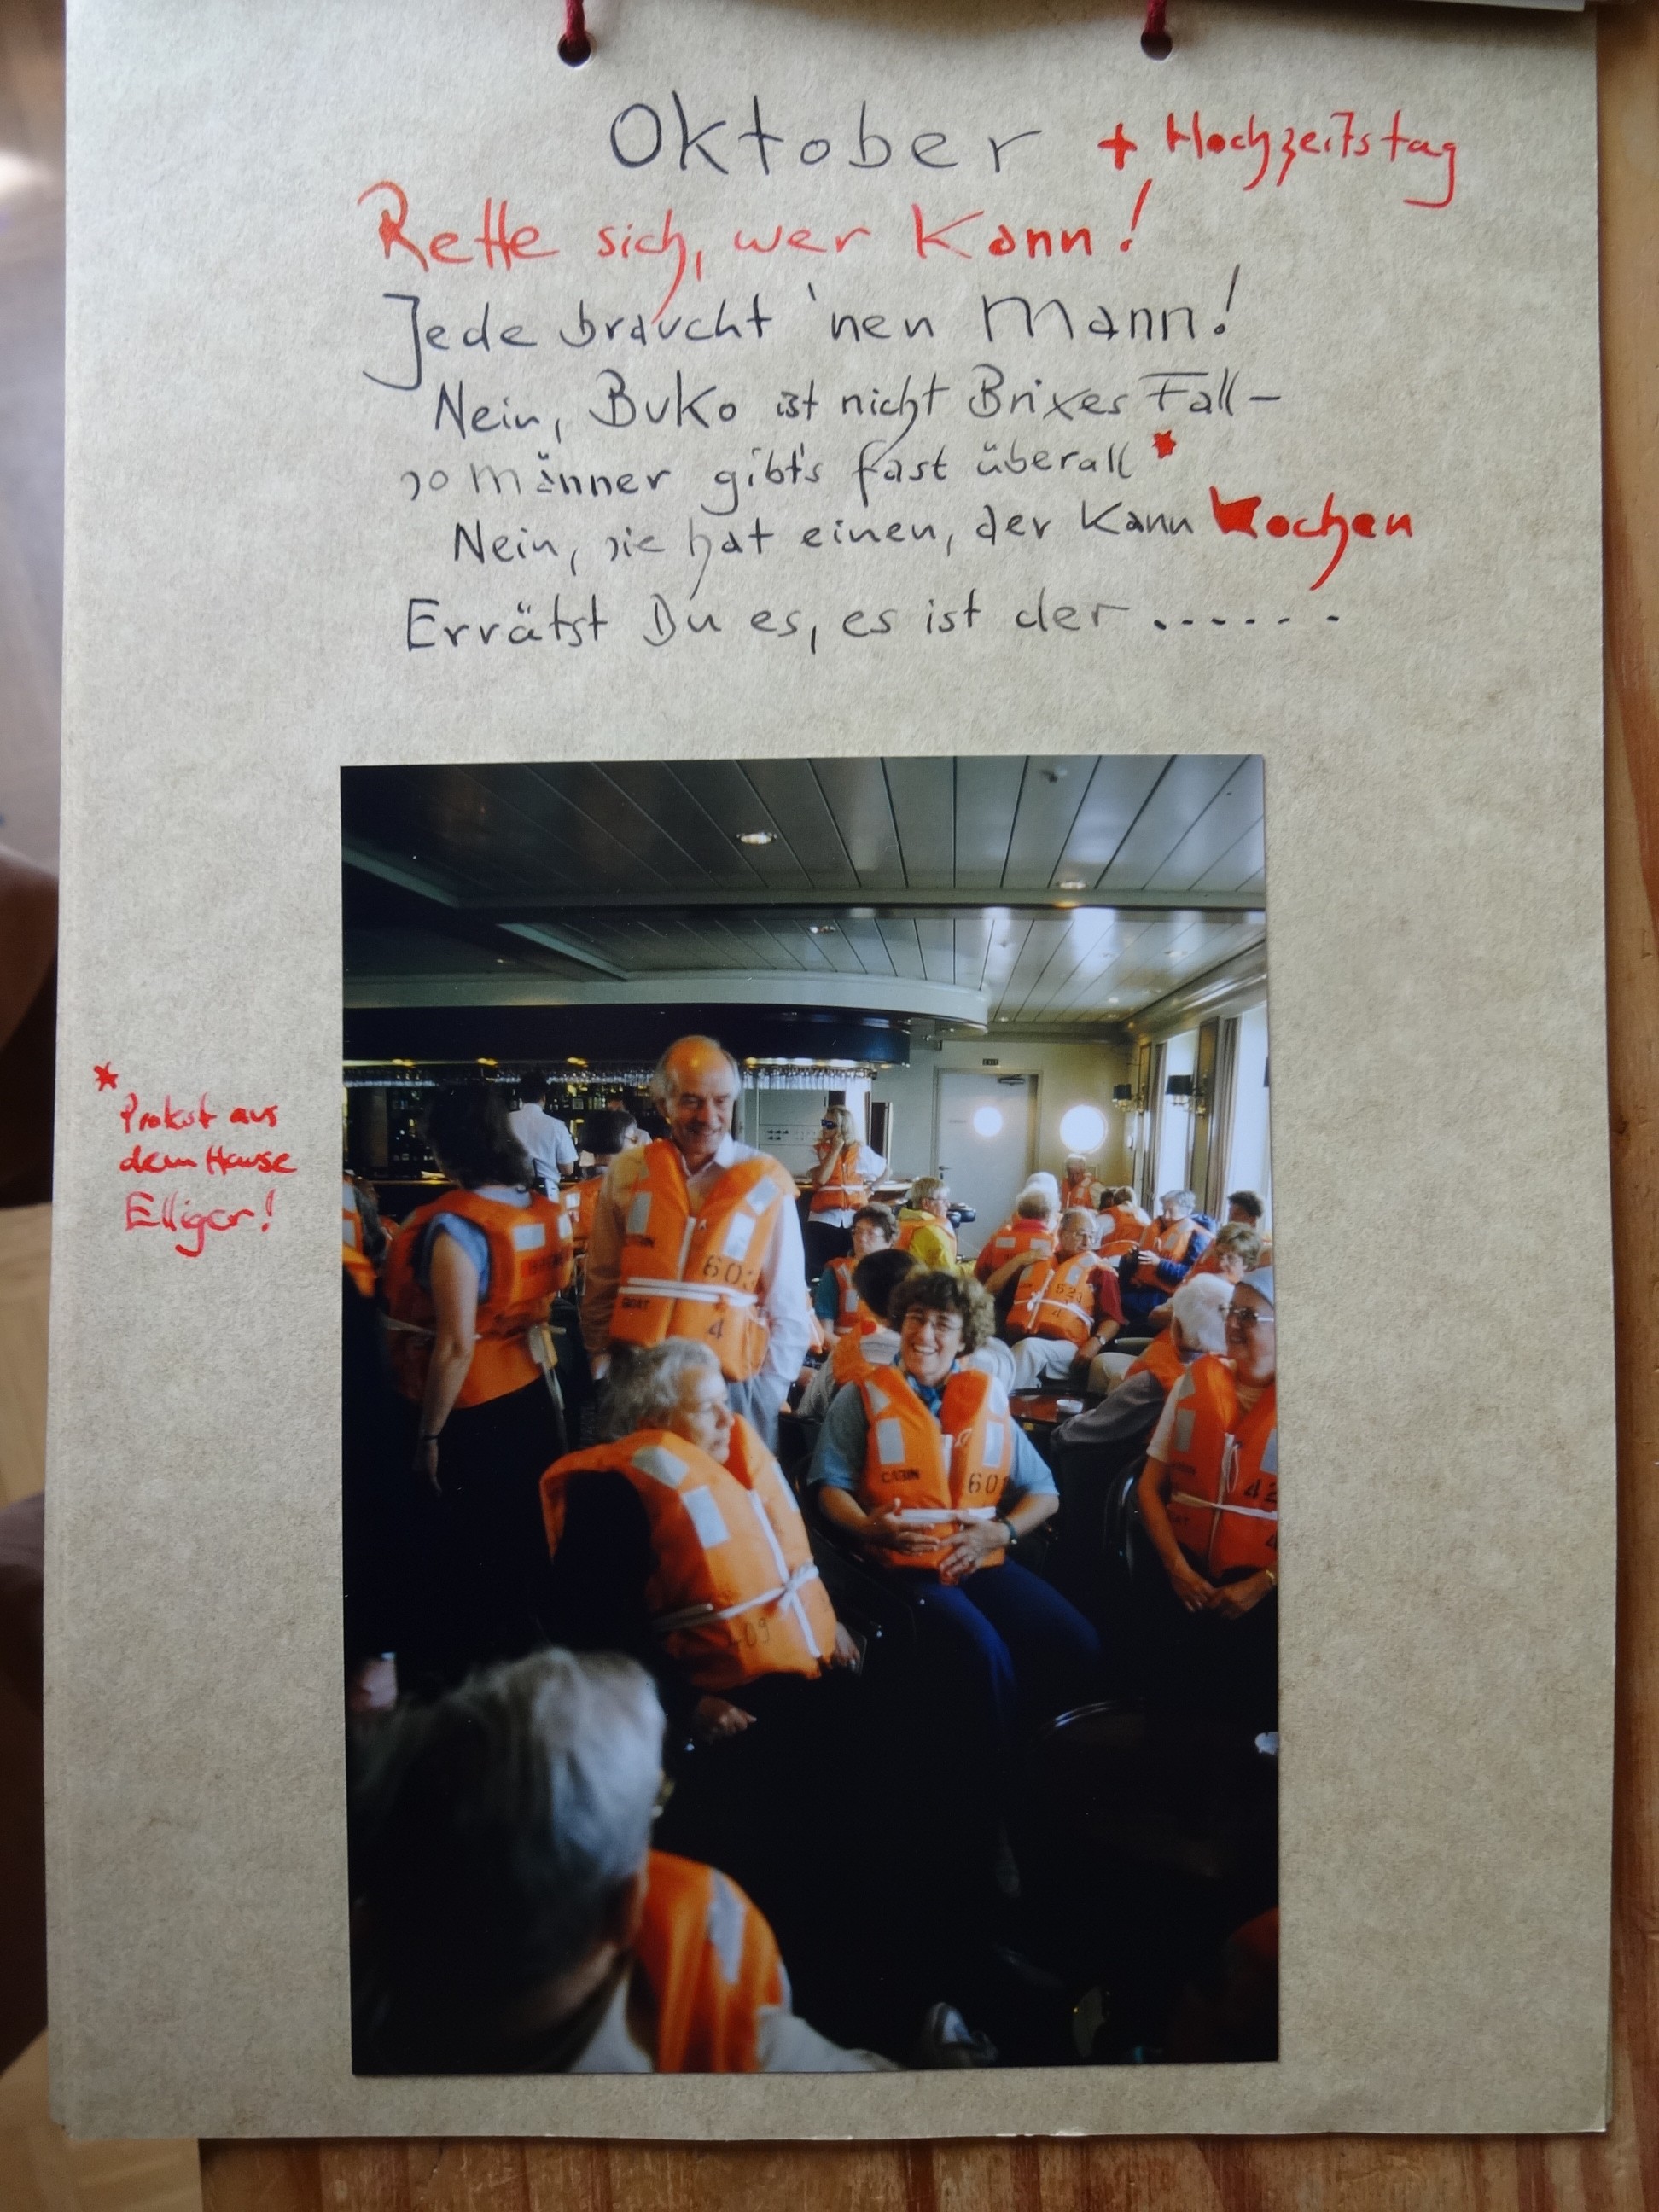 Oktober + Hochzeitstag
Rette sich, wer kann!
Jede braucht 'nen Mann!
Nein, Buko ist nicht Brixes Fall –
so Männer gibt's fast überall *
Nein, sie hat einen, der kann kochen
Errätst Du es, es ist der ......
* Protest aus
dem Hause
Elliger!
603
BOAT
4
CABIN
60
521
4
42
4
09
EXIT